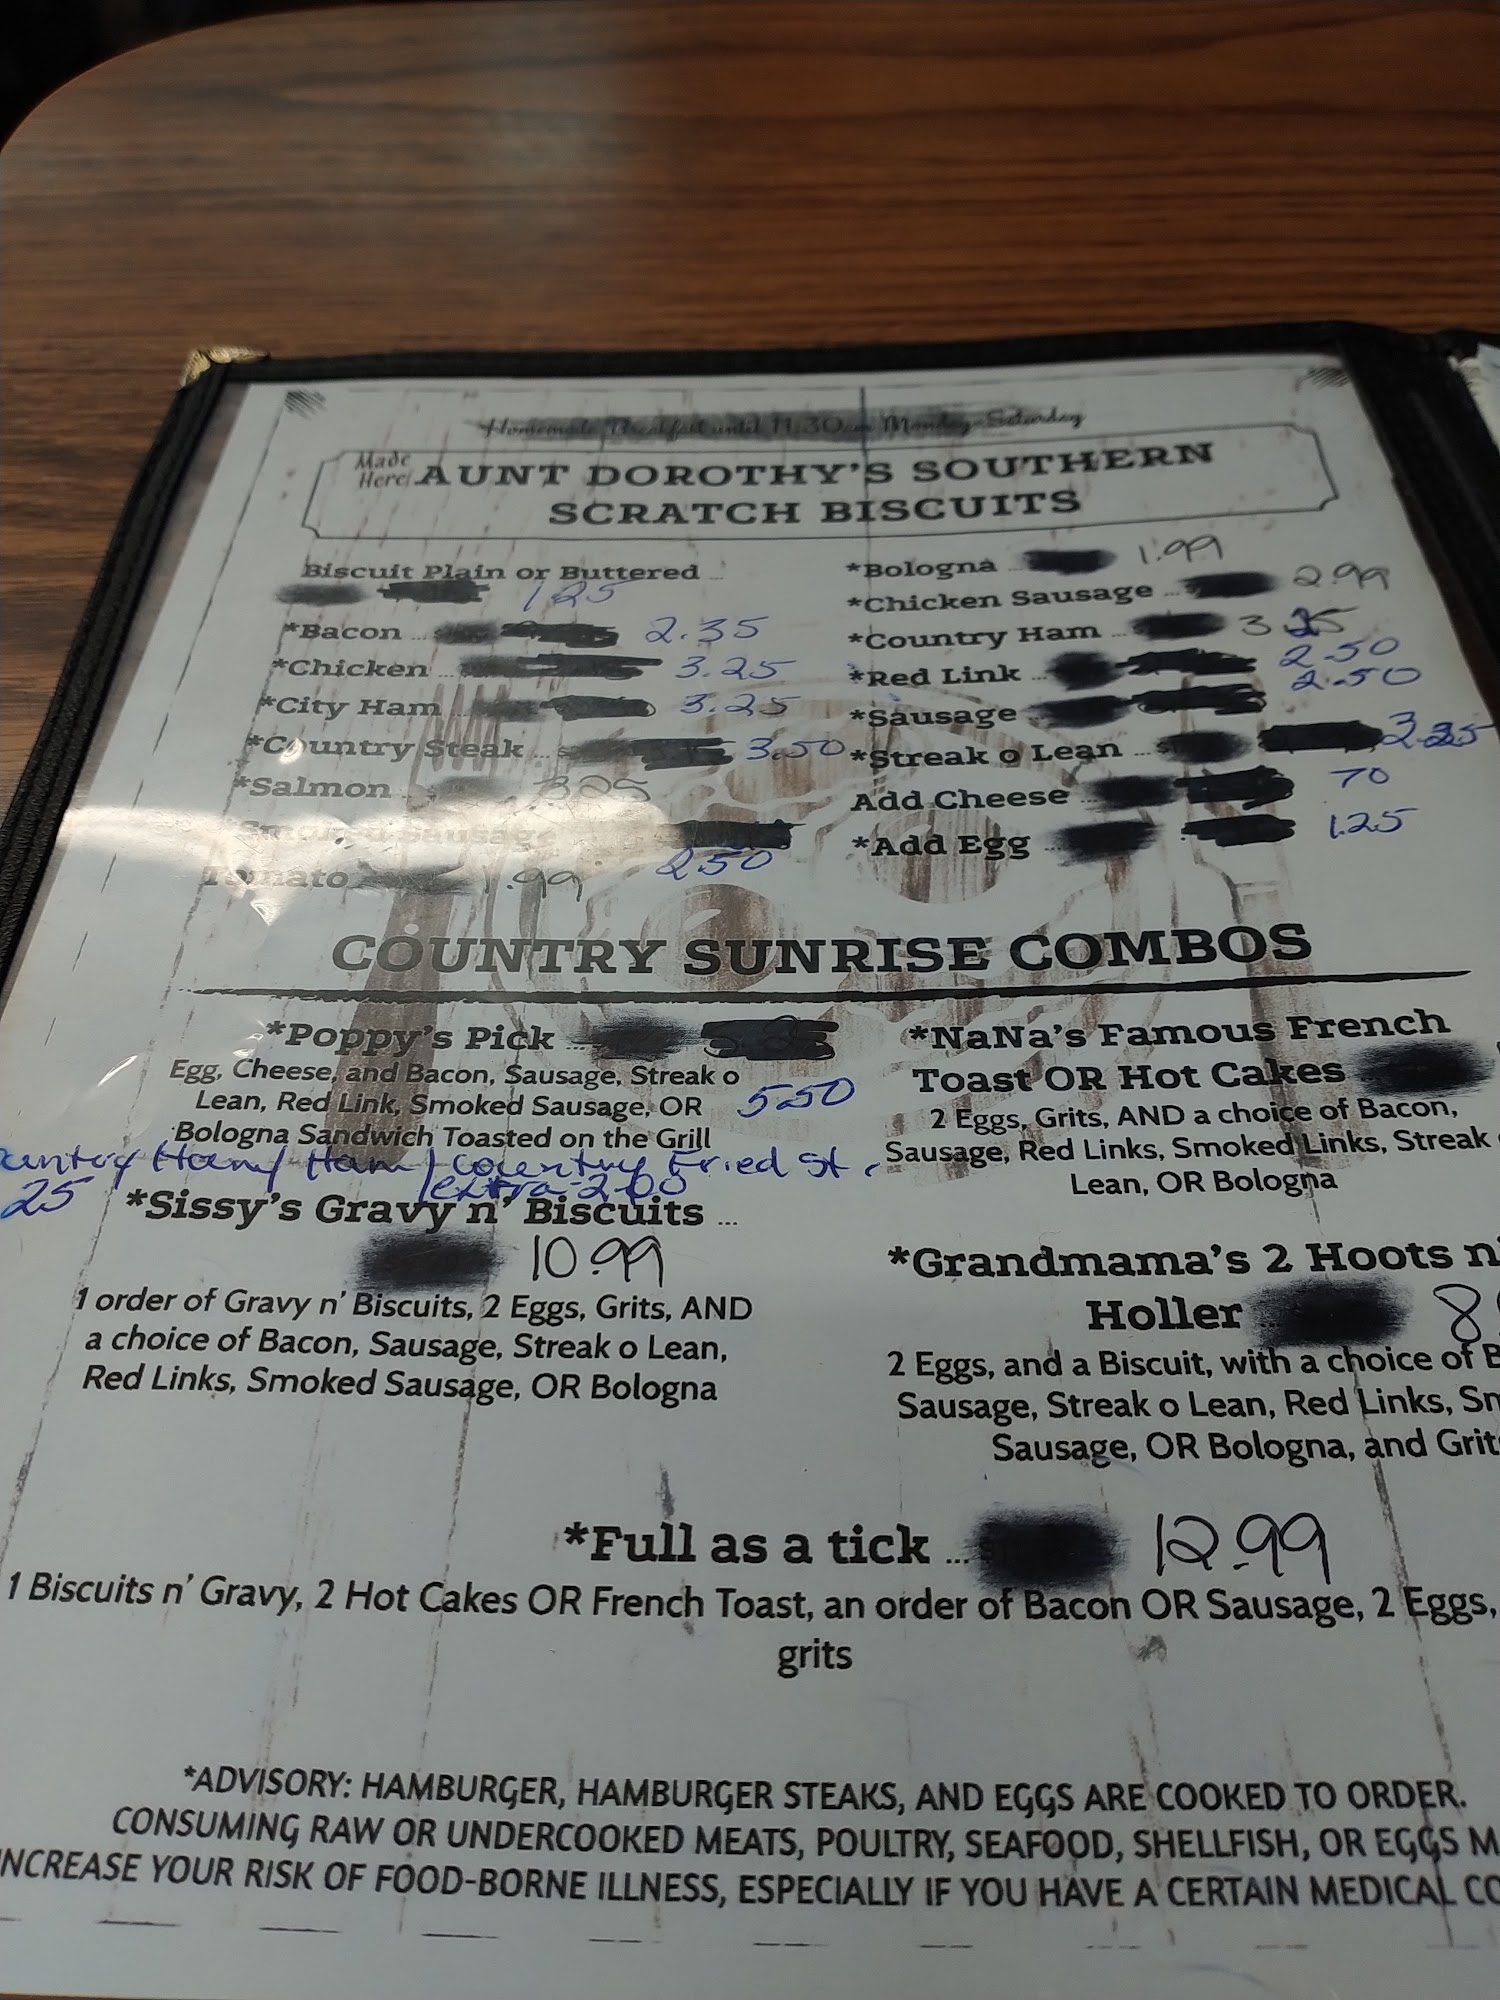 Homemade Breakfast until 11:30am Monday-Saturday
Made Here! AUNT DOROTHY'S SOUTHERN
SCRATCH BISCUITS
Biscuit Plain or Buttered ...
1.25
*Bacon ... 2.35
*Chicken ... 3.25
*City Ham ... 3.25
*Country Steak ... 3.50
*Salmon
*Smoked Sausage
2.50
Tomato 1.99
*Bologna ... 1.99
*Chicken Sausage ... 2.99
*Country Ham ... 3.25
*Red Link ... 2.50
*Sausage ... 2.50
*Streak o Lean ... 3.25
Add Cheese ... 70
*Add Egg ... 1.25
COUNTRY SUNRISE COMBOS
*Poppy's Pick ...
Egg, Cheese, and Bacon, Sausage, Streak o
Lean, Red Link, Smoked Sausage, OR 5.50
Bologna Sandwich Toasted on the Grill
Ham / Country Fried St
extra 2.00
25
*Sissy's Gravy n' Biscuits ...
10.99
1 order of Gravy n' Biscuits, 2 Eggs, Grits, AND
a choice of Bacon, Sausage, Streak o Lean,
Red Links, Smoked Sausage, OR Bologna
*NaNa's Famous French
Toast OR Hot Cakes
2 Eggs, Grits, AND a choice of Bacon,
Sausage, Red Links, Smoked Links, Streak o
Lean, OR Bologna
*Grandmama's 2 Hoots n'
Holler ... 8
2 Eggs, and a Biscuit, with a choice of B
Sausage, Streak o Lean, Red Links, Sm
Sausage, OR Bologna, and Grits
*Full as a tick ... 12.99
1 Biscuits n' Gravy, 2 Hot Cakes OR French Toast, an order of Bacon OR Sausage, 2 Eggs,
grits
*ADVISORY: HAMBURGER, HAMBURGER STEAKS, AND EGGS ARE COOKED TO ORDER.
CONSUMING RAW OR UNDERCOOKED MEATS, POULTRY, SEAFOOD, SHELLFISH, OR EGGS M
INCREASE YOUR RISK OF FOOD-BORNE ILLNESS, ESPECIALLY IF YOU HAVE A CERTAIN MEDICAL CO